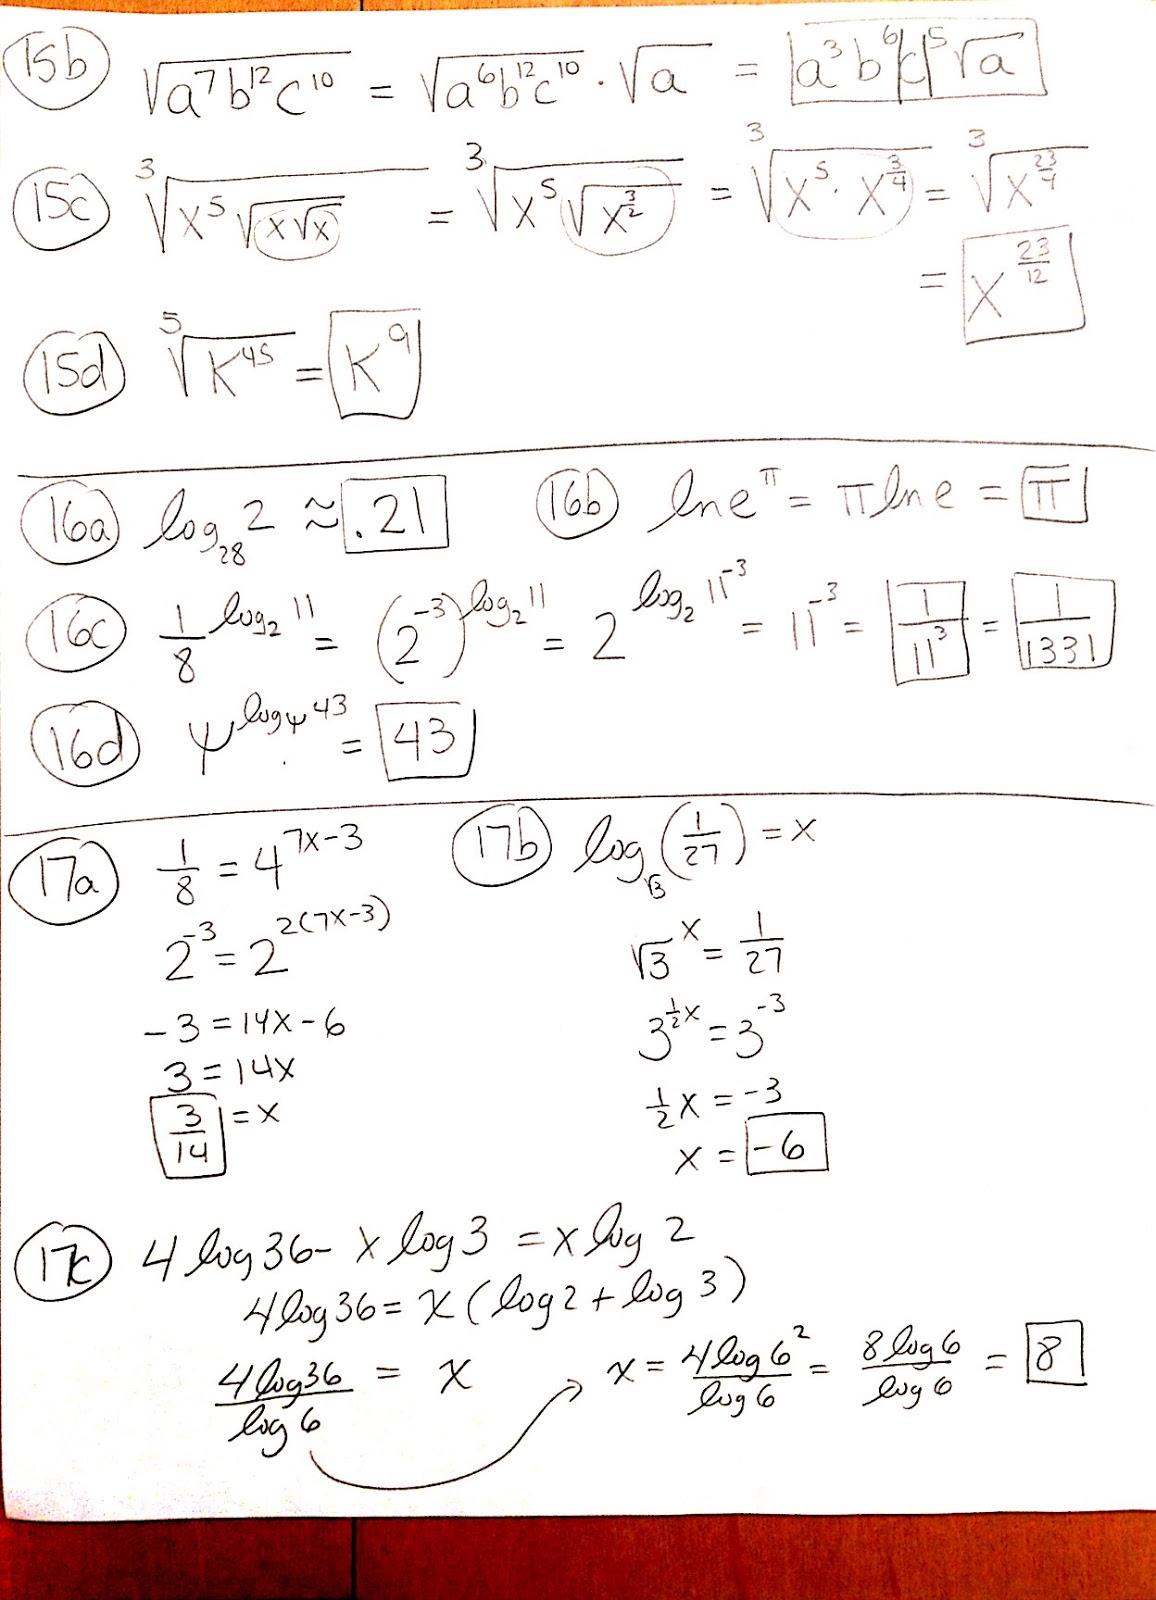 15b √(a⁷b¹²c¹⁰) = √(a⁶b¹²c¹⁰) · √a = a³b⁶|c|⁵√a
15c ∛(x⁵√(x√x)) = ∛(x⁵√(x^(3/2))) = ∛(x⁵ · x^(3/4)) = ∛(x^(23/4))
= x^(23/12)
15d ⁵√(K⁴⁵) = K⁹
16a log₂₈2 ≈ .21 16b ln e^π = π ln e = π
16c 1/8^(log₂11) = (2⁻³)^(log₂11) = 2^(log₂11⁻³) = 11⁻³ = 1/11³ = 1/1331
16d ψ^(log_ψ 43) = 43
17a 1/8 = 4^(7x-3)
2⁻³ = 2^(2(7x-3))
-3 = 14x - 6
3 = 14x
3/14 = x
17b log_√3(1/27) = x
√3^x = 1/27
3^(½x) = 3⁻³
½x = -3
x = -6
17c 4 log 36 - x log 3 = x log 2
4 log 36 = x (log 2 + log 3)
4 log 36 / log 6 = x x = 4 log 6² / log 6 = 8 log 6 / log 6 = 8